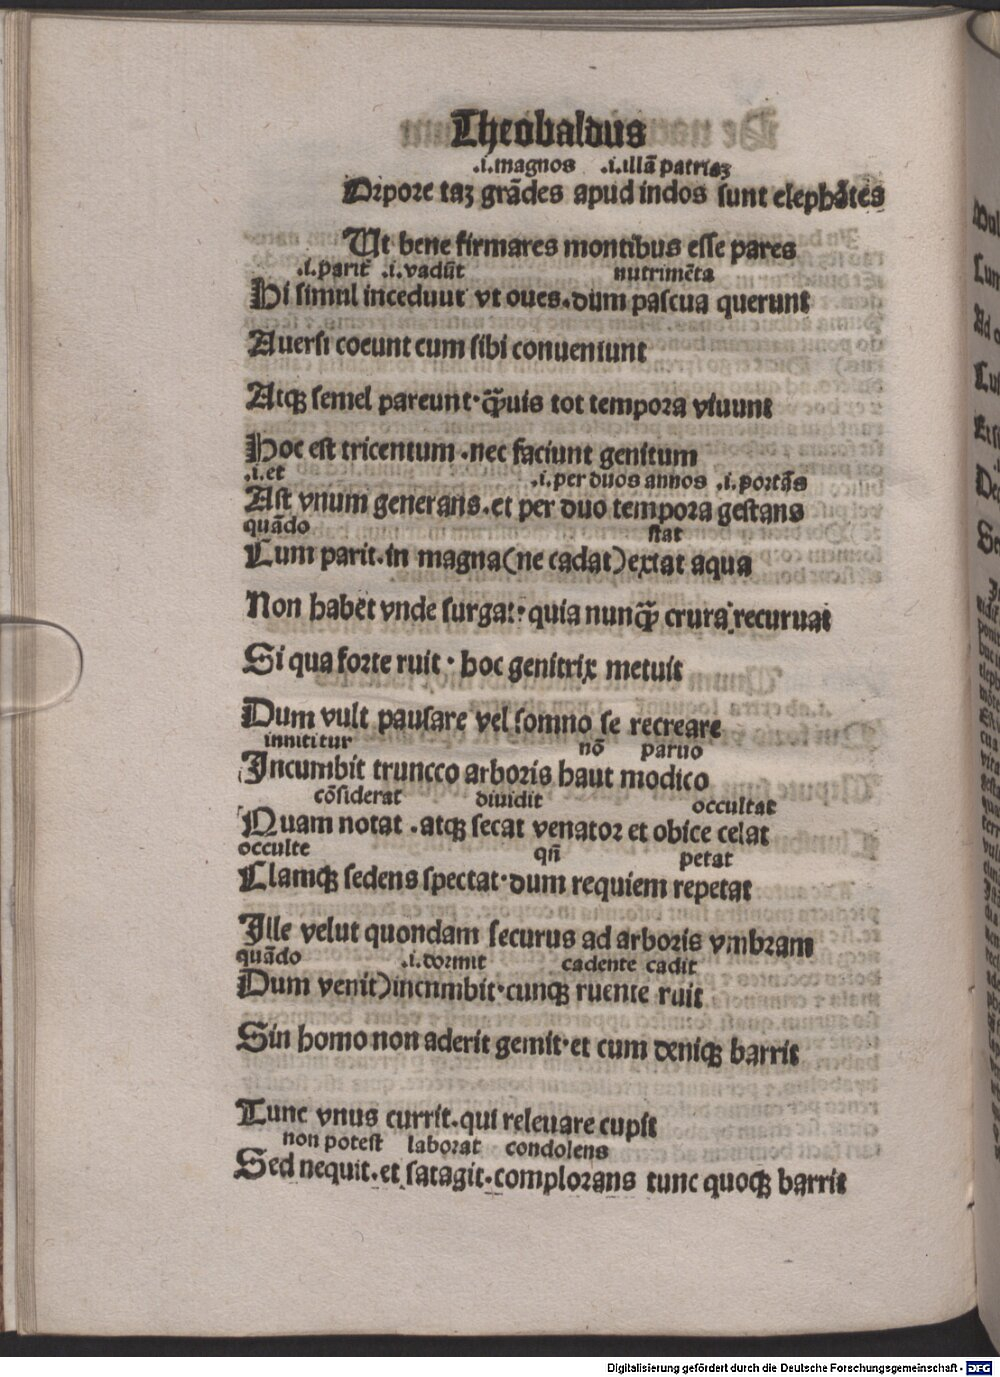 Theobaldus
.i.magnos .i.illã patriaʒ
Orpore taʒ grãdes apud indos sunt elephãtes
Ut bene firmares montibus esse pares
.i.parit̃ .i.vadũt nutrimẽta
Hi simul inceduut vt oues.dum pascua querunt
Auersi coeunt cum sibi conueniunt
Atqꝫ semel pareunt·q̃uis tot tempora viuunt
Hoc est tricentum.nec faciunt genitum
.i.et .i.per duos annos .i.portãs
Ast vnum generans.et per duo tempora gestans
quãdo stat
Cum parit.in magna(ne cadat)extat aqua
Non habet vnde surgat:quia nunq̃ crura recuruat
Si qua forte ruit·hoc genitrix metuit
Dum vult pausare vel somno se recreare
innititur nõ paruo
Incumbit truncco arboris haut modico
cõsiderat diuidit occultat
Quam notat .atqꝫ secat venator et obice celat
occulte qñ petat
Clamqꝫ sedens spectat·dum requiem repetat
Ille velut quondam securus ad arboris vmbram
quãdo .i.dormit cadente cadit
Dum venit)incumbit·cunqꝫ ruente ruit
Sin homo non aderit gemit·et cum deniqꝫ barrit
Tunc vnus currit.qui releuare cupit
non potest laborat condolens
Sed nequit.et satagit.complorans tunc quoqꝫ barrit
Digitalisierung gefördert durch die Deutsche Forschungsgemeinschaft - DFG